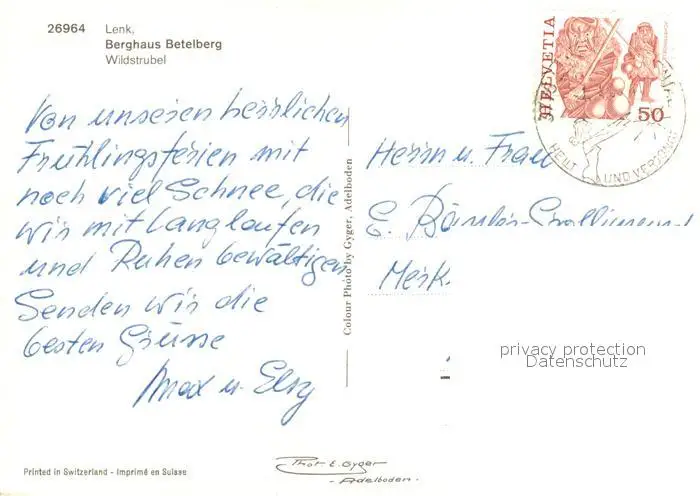 26964 Lenk,
Berghaus Betelberg
Wildstrubel
Von unseren herrlichen
Frühlingsferien mit
noch viel Schnee, die
wir mit Langlaufen
und Ruhen bewältigen
Senden wir die
besten Grüsse
Max u. Elsy
Printed in Switzerland - Imprimé en Suisse
Colour Photo by Gyger, Adelboden
Phot E. Gyger
- Adelboden -
HELVETIA
50
HEILT UND VERJÜNGT
Herrn u. Frau
E.
privacy protection
Datenschutz